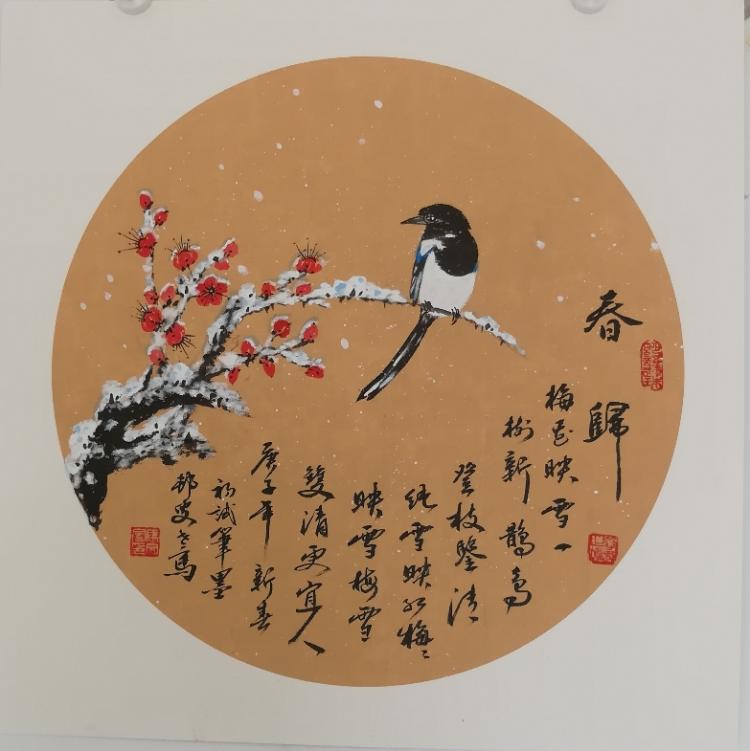 春歸
梅花映雪一
樹新鵲鳥
登枝鑒清
純雪映紅梅梅
映雪梅雪
雙清更宜人
庚子年新春
初試筆墨
邨叟老馬